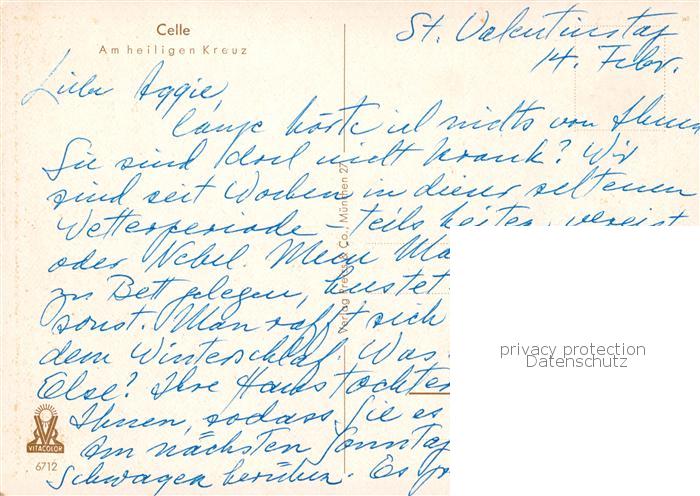 Celle
Am heiligen Kreuz
St. Valentinstag
14. Febr.
Liebe Aggie,
lange hörte ich nichts von Ihnen
Sie sind doch nicht krank? Wir
sind seit Wochen in dieser seltenen
Wetterperiode – teils heiter, vereist
oder Nebel. Mein Ma
zu Bett gelegen, hustet
sonst. Man rafft sich
dem Winterschlaf. Was
Else? Ihre Haustochter
Ihnen, sodass Sie es
Am nächsten Sonntag
Schwager
Es
Verlag Krebs & Co., München 27
privacy protection
Datenschutz
VITACOLOR
6712